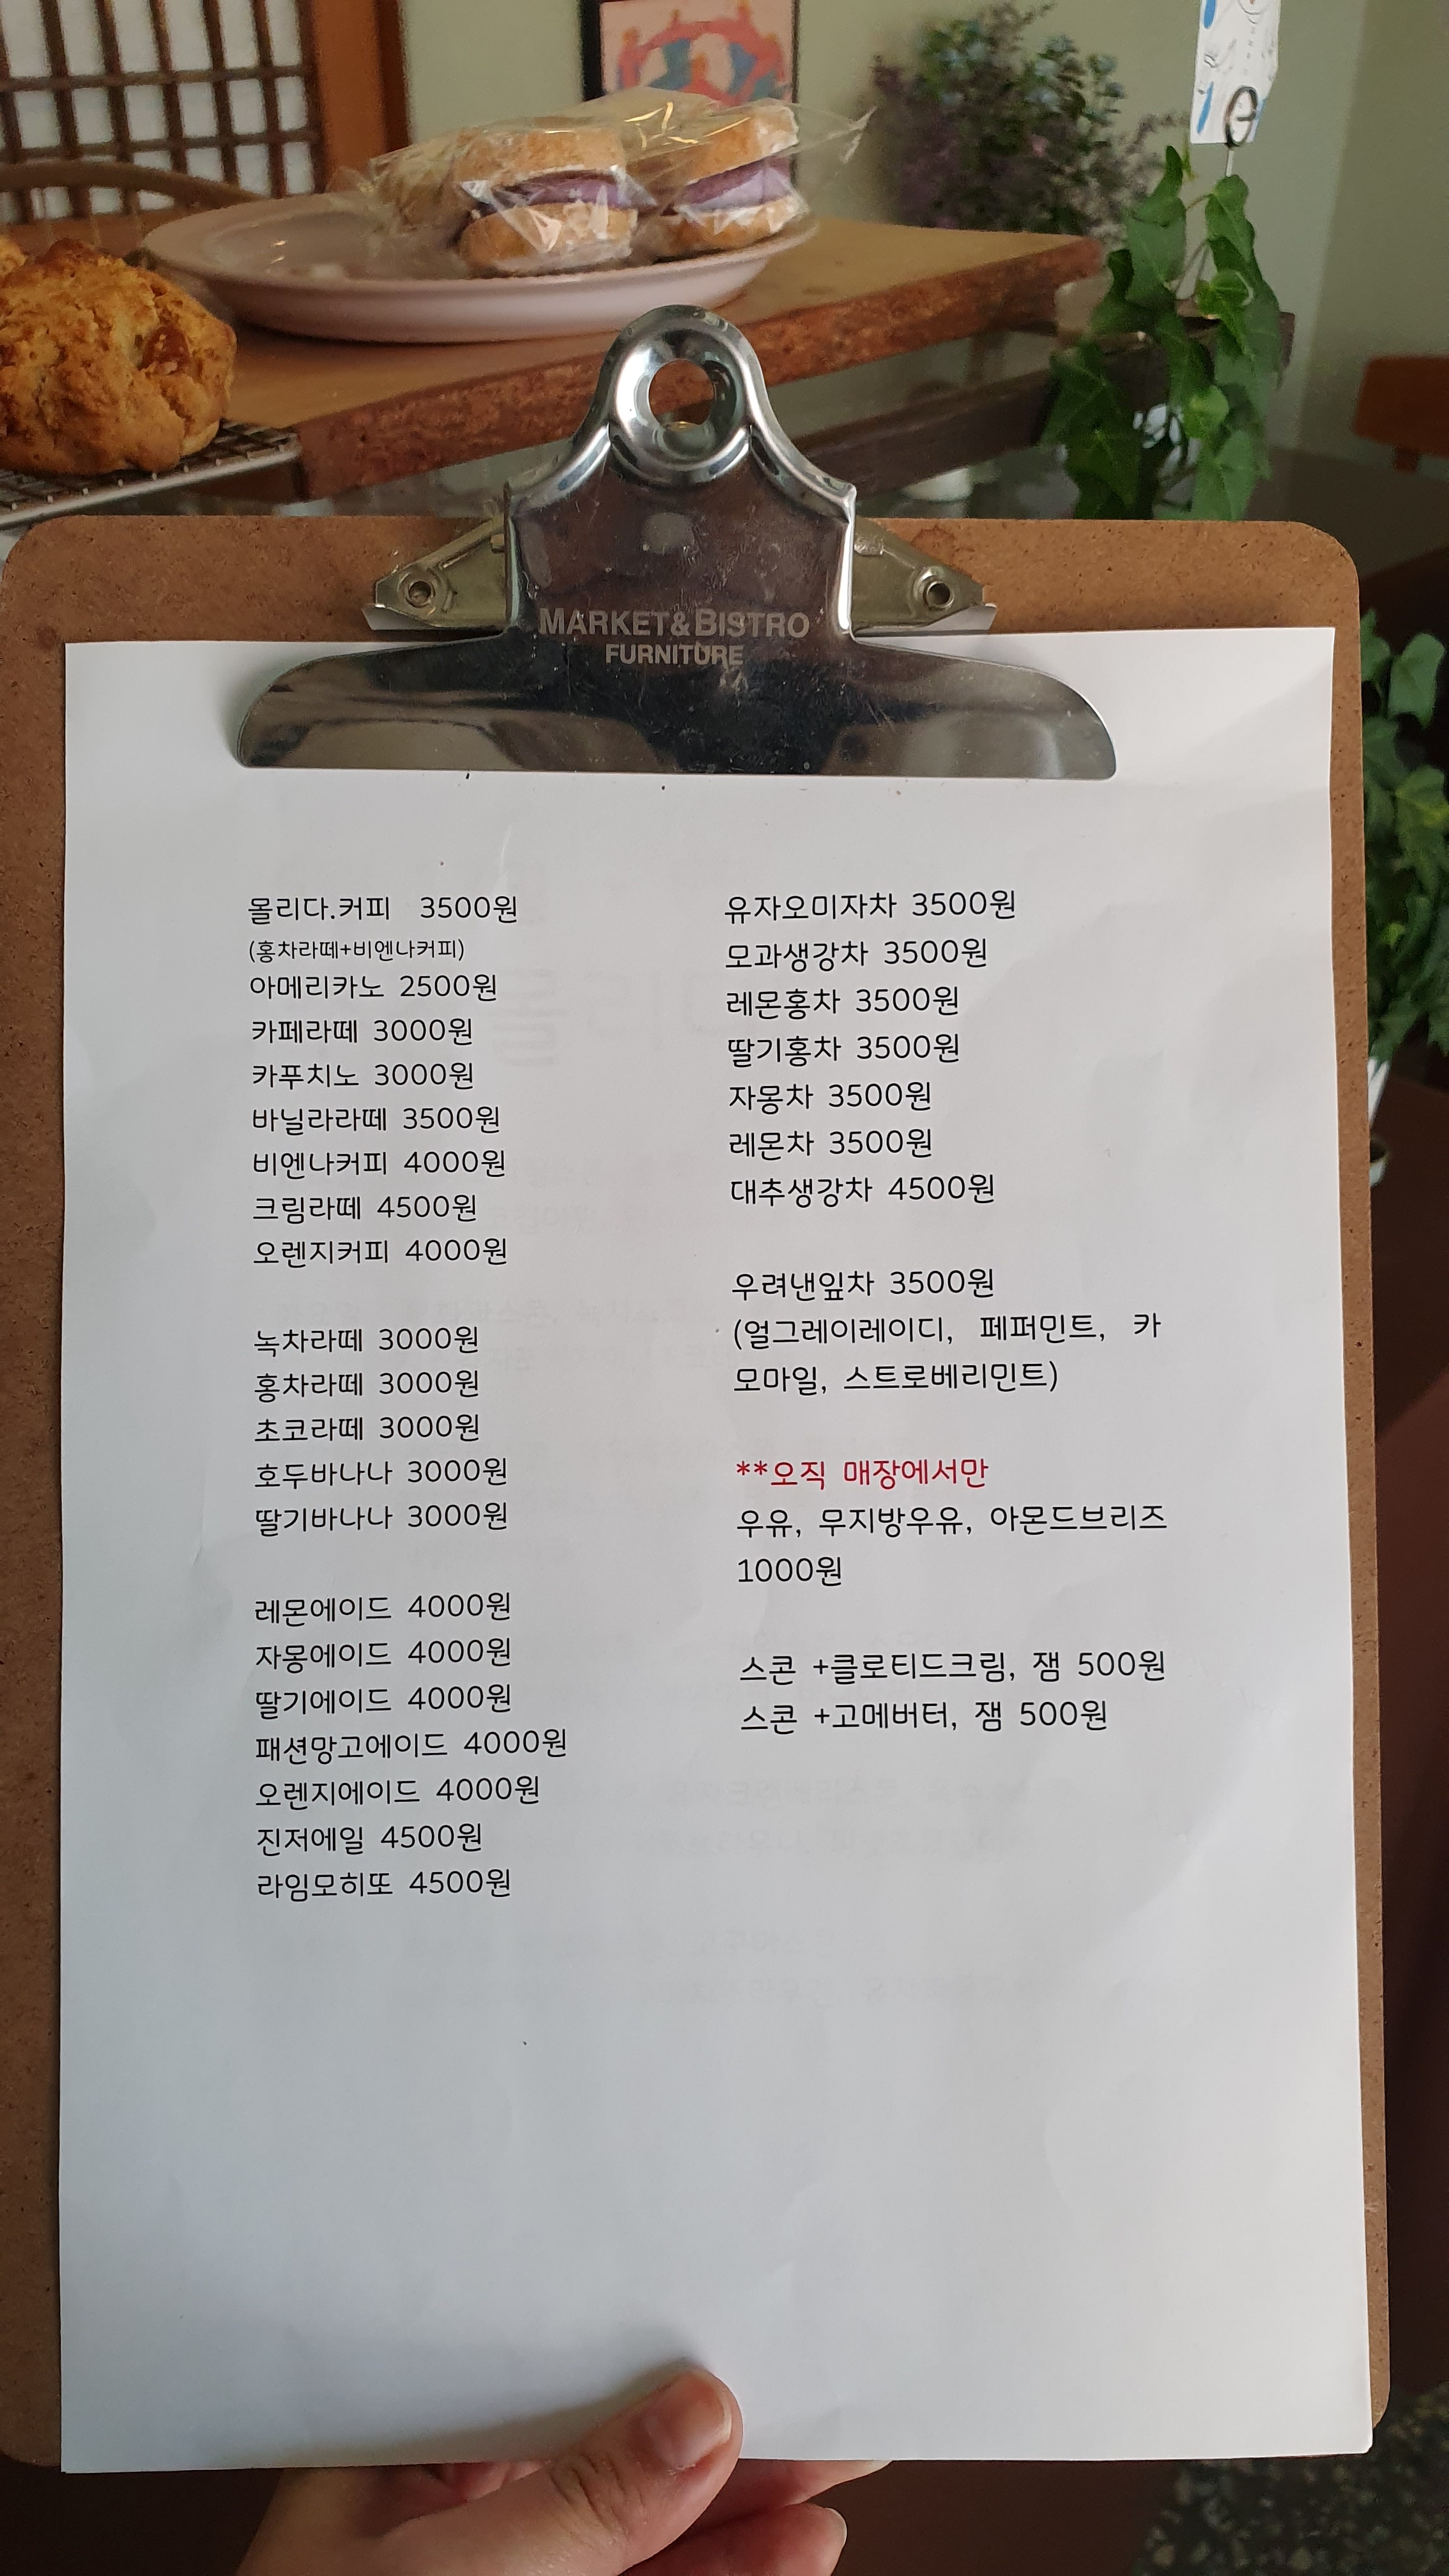 MARKET&BISTRO
FURNITURE
몰리다.커피 3500원
(홍차라떼+비엔나커피)
아메리카노 2500원
카페라떼 3000원
카푸치노 3000원
바닐라라떼 3500원
비엔나커피 4000원
크림라떼 4500원
오렌지커피 4000원
녹차라떼 3000원
홍차라떼 3000원
초코라떼 3000원
호두바나나 3000원
딸기바나나 3000원
레몬에이드 4000원
자몽에이드 4000원
딸기에이드 4000원
패션망고에이드 4000원
오렌지에이드 4000원
진저에일 4500원
라임모히또 4500원
유자오미자차 3500원
모과생강차 3500원
레몬홍차 3500원
딸기홍차 3500원
자몽차 3500원
레몬차 3500원
대추생강차 4500원
우려낸잎차 3500원
(얼그레이레이디, 페퍼민트, 카
모마일, 스트로베리민트)
**오직 매장에서만
우유, 무지방우유, 아몬드브리즈
1000원
스콘 +클로티드크림, 잼 500원
스콘 +고메버터, 잼 500원